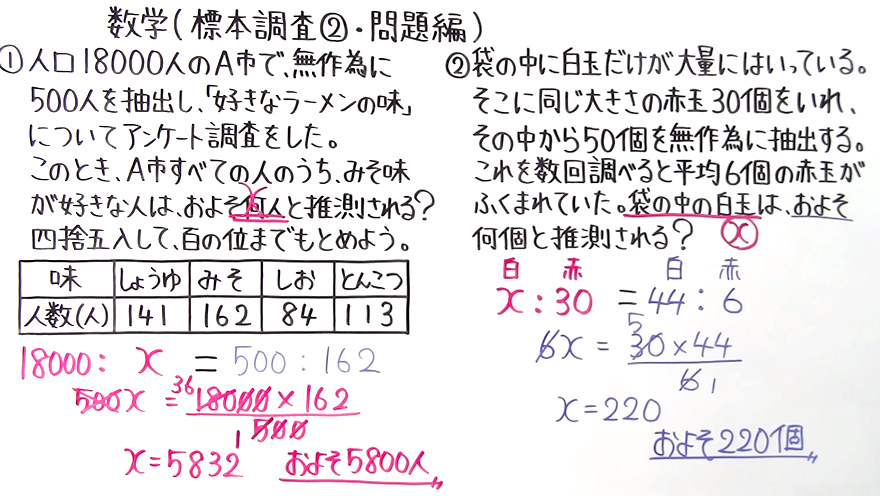 数学(標本調査②・問題編)
①人口18000人のA市で、無作為に
500人を抽出し、「好きなラーメンの味」
についてアンケート調査をした。
このとき、A市すべての人のうち、みそ味
が好きな人は、およそ何人と推測される?
x
四捨五入して、百の位までもとめよう。
味 しょうゆ みそ しお とんこつ
人数(人) 141 162 84 113
18000: x = 500 : 162
500x = 18000 × 162
36
500
1
x=5832 およそ5800人
②袋の中に白玉だけが大量にはいっている。
そこに同じ大きさの赤玉30個をいれ、
その中から50個を無作為に抽出する。
これを数回調べると平均6個の赤玉が
ふくまれていた。袋の中の白玉は、およそ
何個と推測される? x
白 赤 白 赤
x : 30 = 44 : 6
6x = 30 × 44
5
6 1
x=220
およそ220個